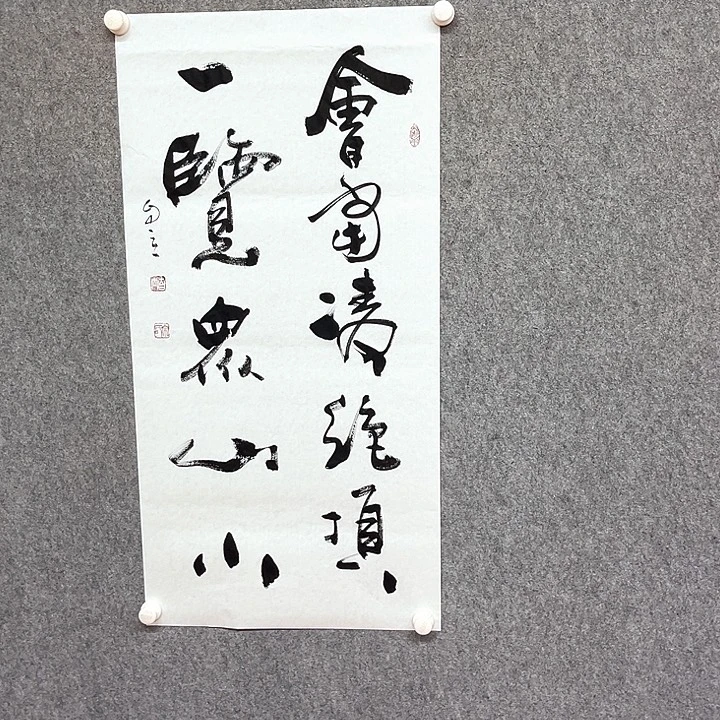 會當凌絕頂
一覽衆山小